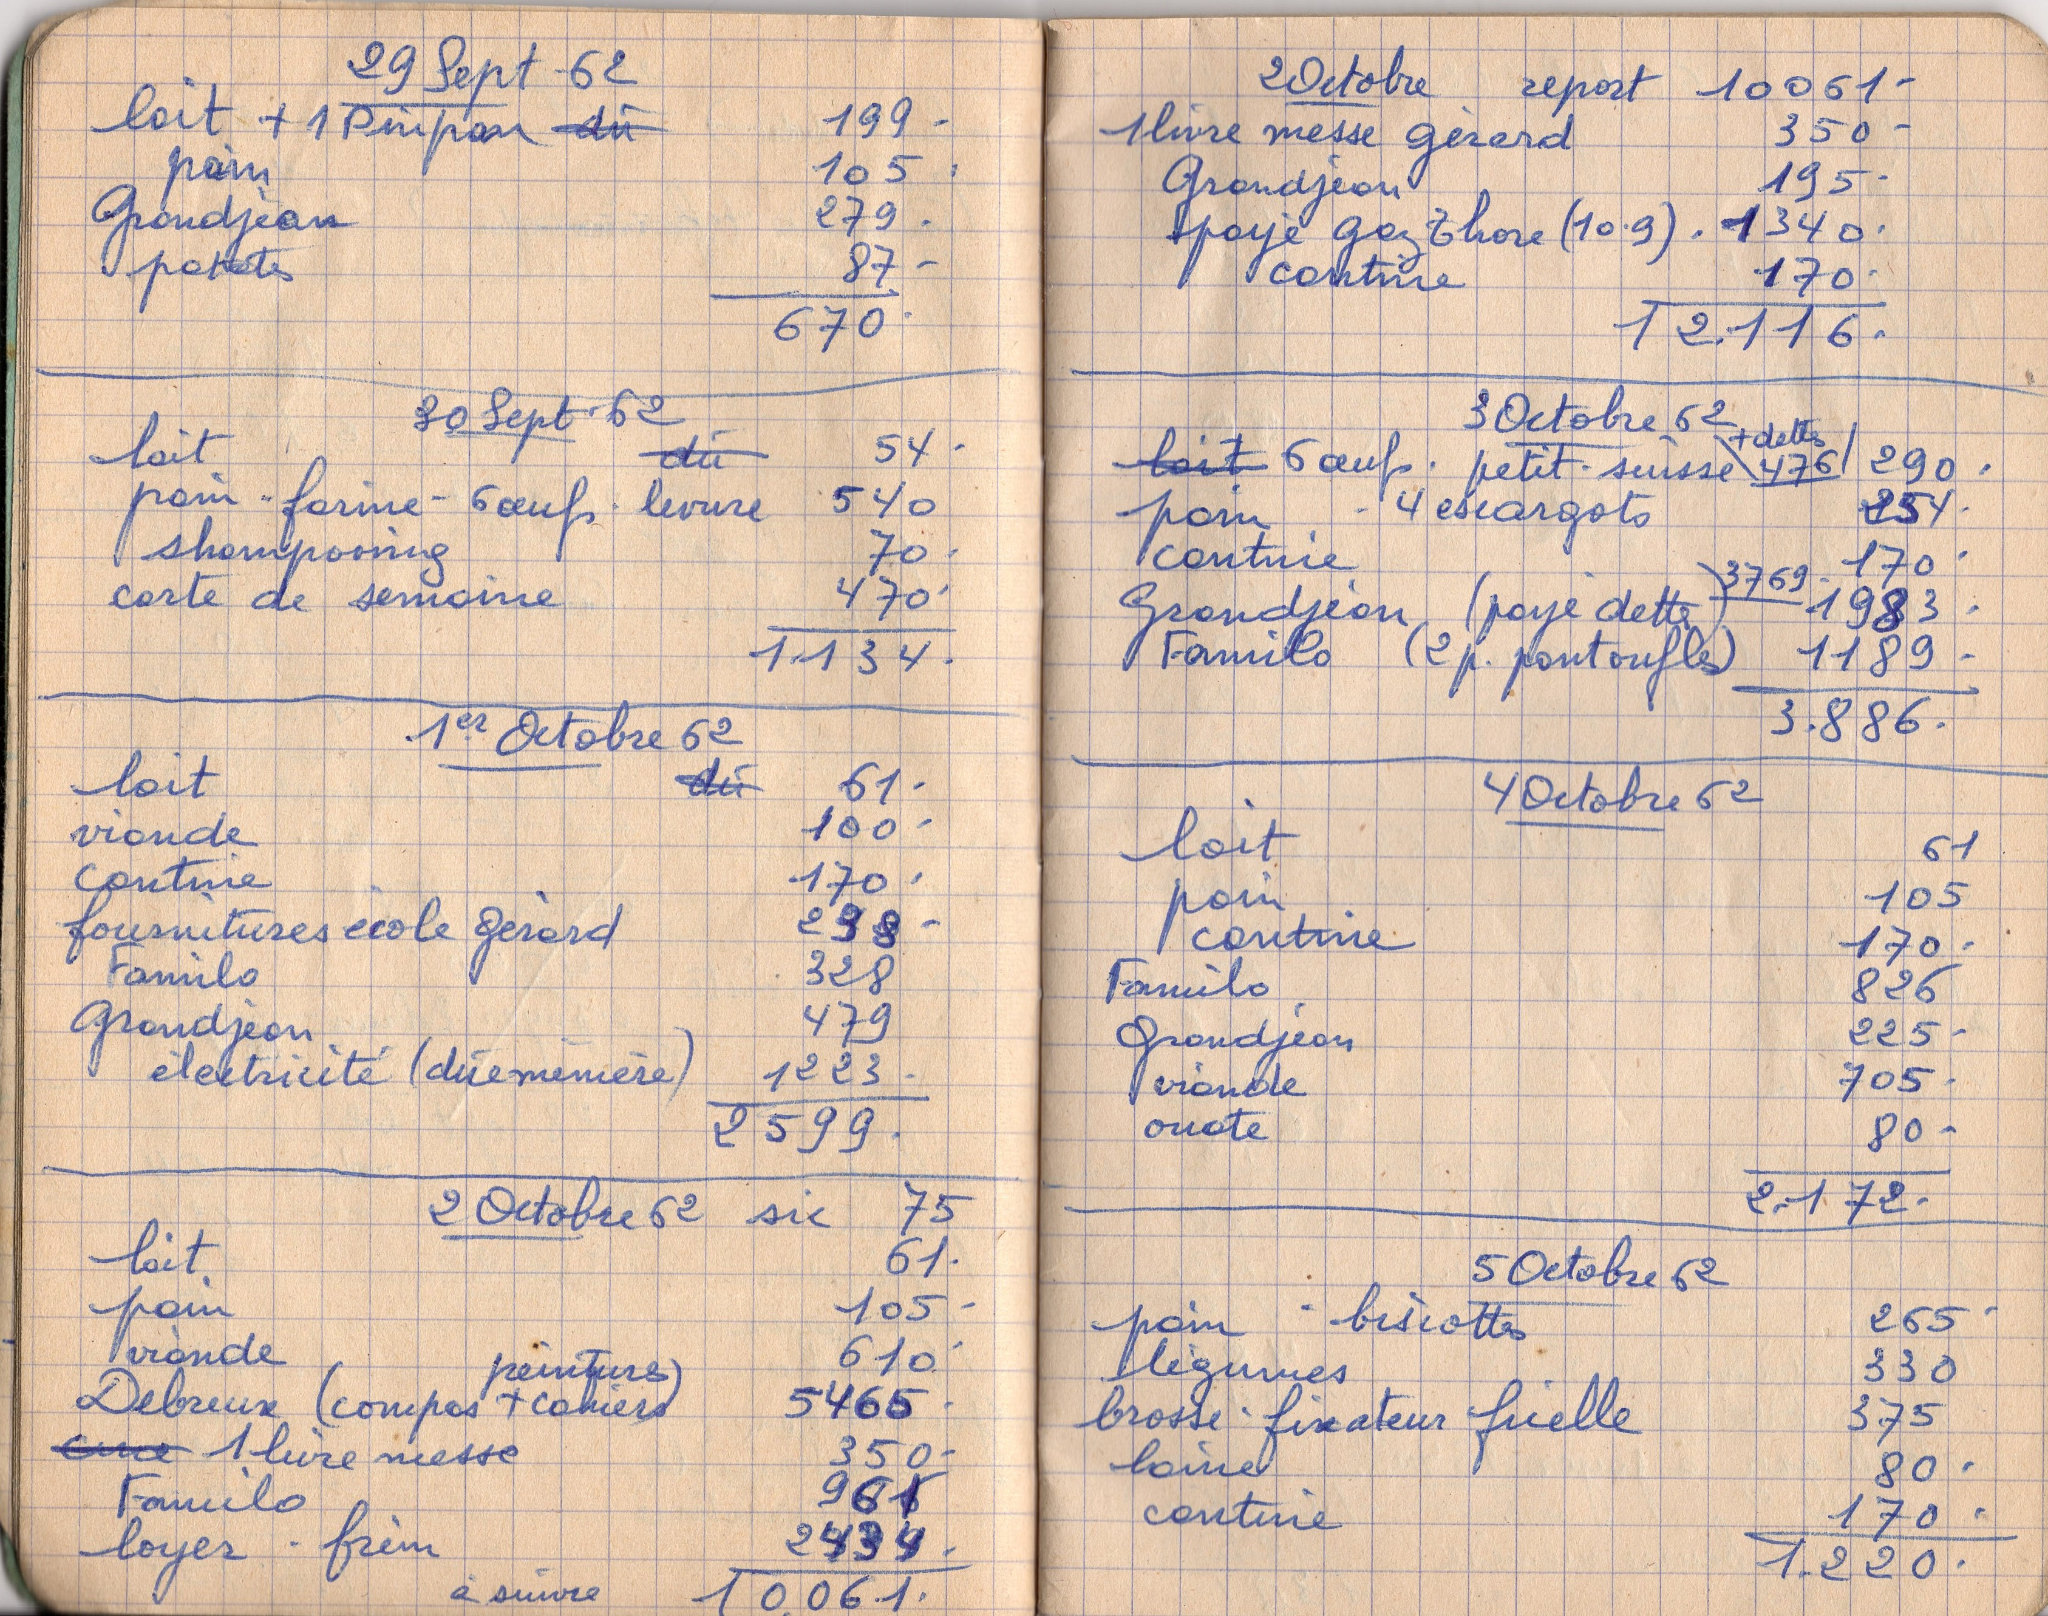 29 Sept 62
lait + 1 Pimpan dû 199 -
pain 105 .
Grandjean 279 .
patates 87 -
670 .
30 Sept 62
lait dû 54 .
pain - farine - 6 œufs - levure 540
shampooing 70 .
carte de semaine 470 .
1.134 .
1er Octobre 62
lait dû 61 .
viande 100 -
cantine 170 .
fournitures école Gérard 238 -
Familo 328
Grandjean 479
électricité (dûe mémère) 1223 .
2599 .
2 Octobre 62 sic 75
lait 61 .
pain 105 -
viande 610 .
peintures
Debreux (compas + cahiers) 5465 .
1 livre messe 350 -
Familo 961
loyer - frein 2434 .
à suivre 10.061 .
2 Octobre report 10061 -
1 livre messe Gérard 350 -
Grandjean 195 -
payé gaz Thore (10.9) . 1340 .
cantine 170 .
12.116 .
3 Octobre 62
+ dettes
lait 6 œufs . petit - suisse 476 290 .
pain - 4 escargots 254 .
cantine 170 .
Grandjean (payé dette) 3769 - 1983 .
Familo (2 p. pantoufles) 1189 -
3.886 .
4 Octobre 62
lait 61
pain 105
cantine 170 .
Familo 826
Grandjean 225 -
viande 705 -
ouate 80 -
2.172 .
5 Octobre 62
pain - biscottes 265 -
légumes 330
brosse - fixateur - ficelle 375
laine 80 .
cantine 170 .
1.220 .